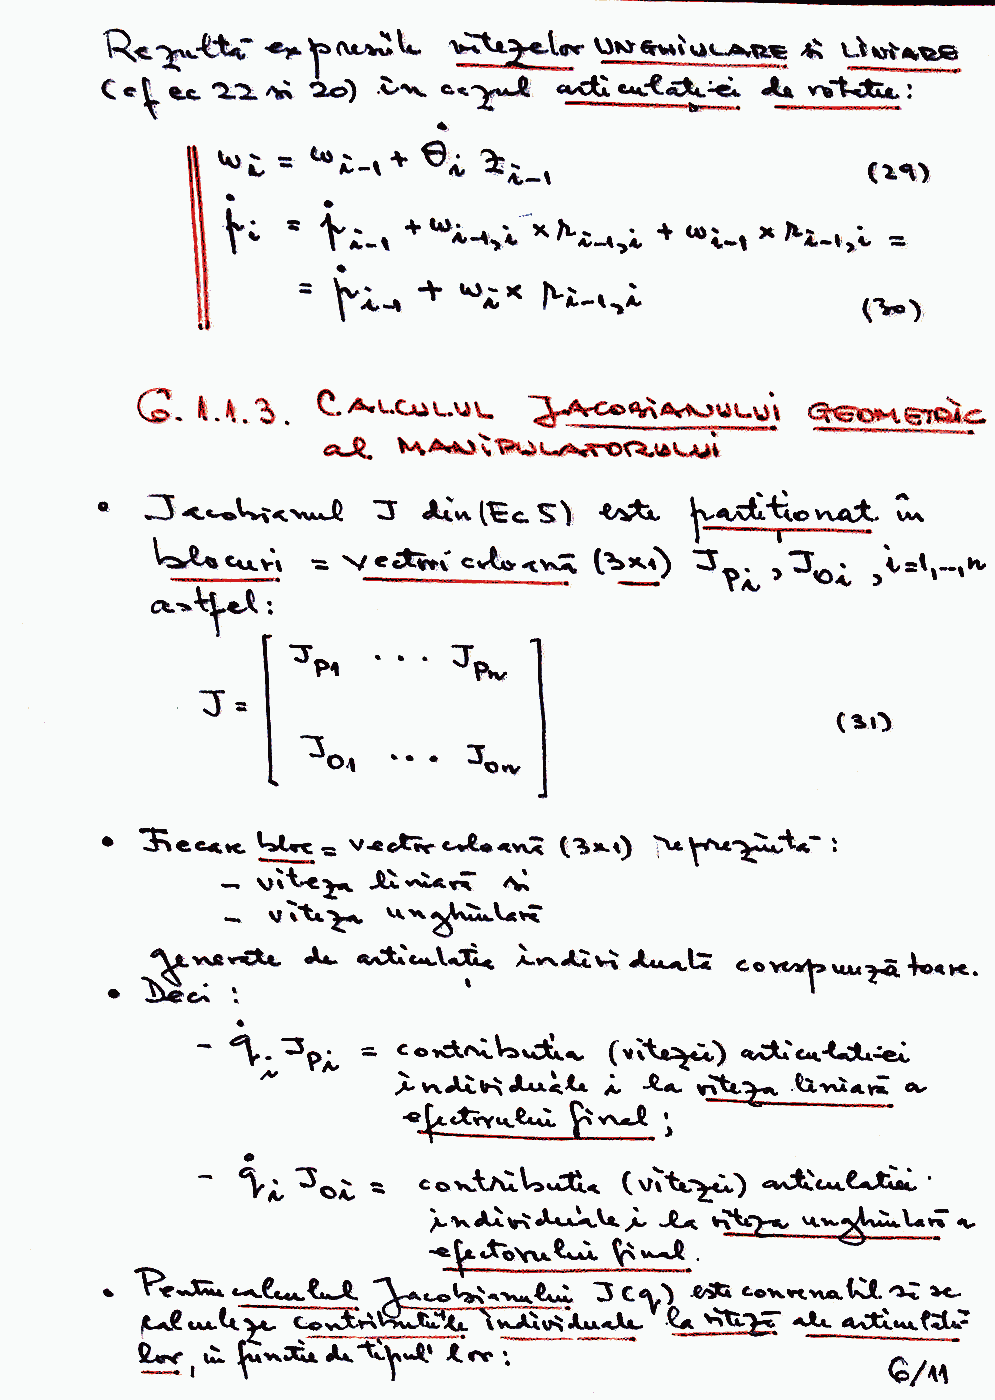 Rezultă expresiile vitezelor UNGHIULARE si LINIARE
(cf ec 22 si 20) în cazul articulatiei de rotatie:
ωi = ωi-1 + θ̇i zi-1 (29)
ṗi = ṗi-1 + ωi-1,i × ri-1,i + ωi-1 × ri-1,i =
= ṗi-1 + ωi × ri-1,i (30)
6.1.1.3. CALCULUL JACOBIANULUI GEOMETRIC
al MANIPULATORULUI
• Jacobianul J din (Ec 5) este partitionat în
blocuri = vectori coloană (3x1) JPi, JOi, i=1,...,n
astfel:
JP1 ... JPn
J =
(31)
JO1 ... JOn
• Fiecare bloc = vector coloană (3x1) reprezintă:
- viteza liniară si
- viteza unghiulară
generate de articulatia individuală corespunzătoare.
• Deci:
- q̇i JPi = contributia (vitezei) articulatiei
individuale i la viteza liniară a
efectorului final;
- q̇i JOi = contributia (vitezei) articulatiei
individuale i la viteza unghiulară a
efectorului final.
• Pentru calculul Jacobianului J(q) este convenabil să se
calculeze contributiile individuale la viteză ale articulatii
lor, în functie de tipul lor:
6/11